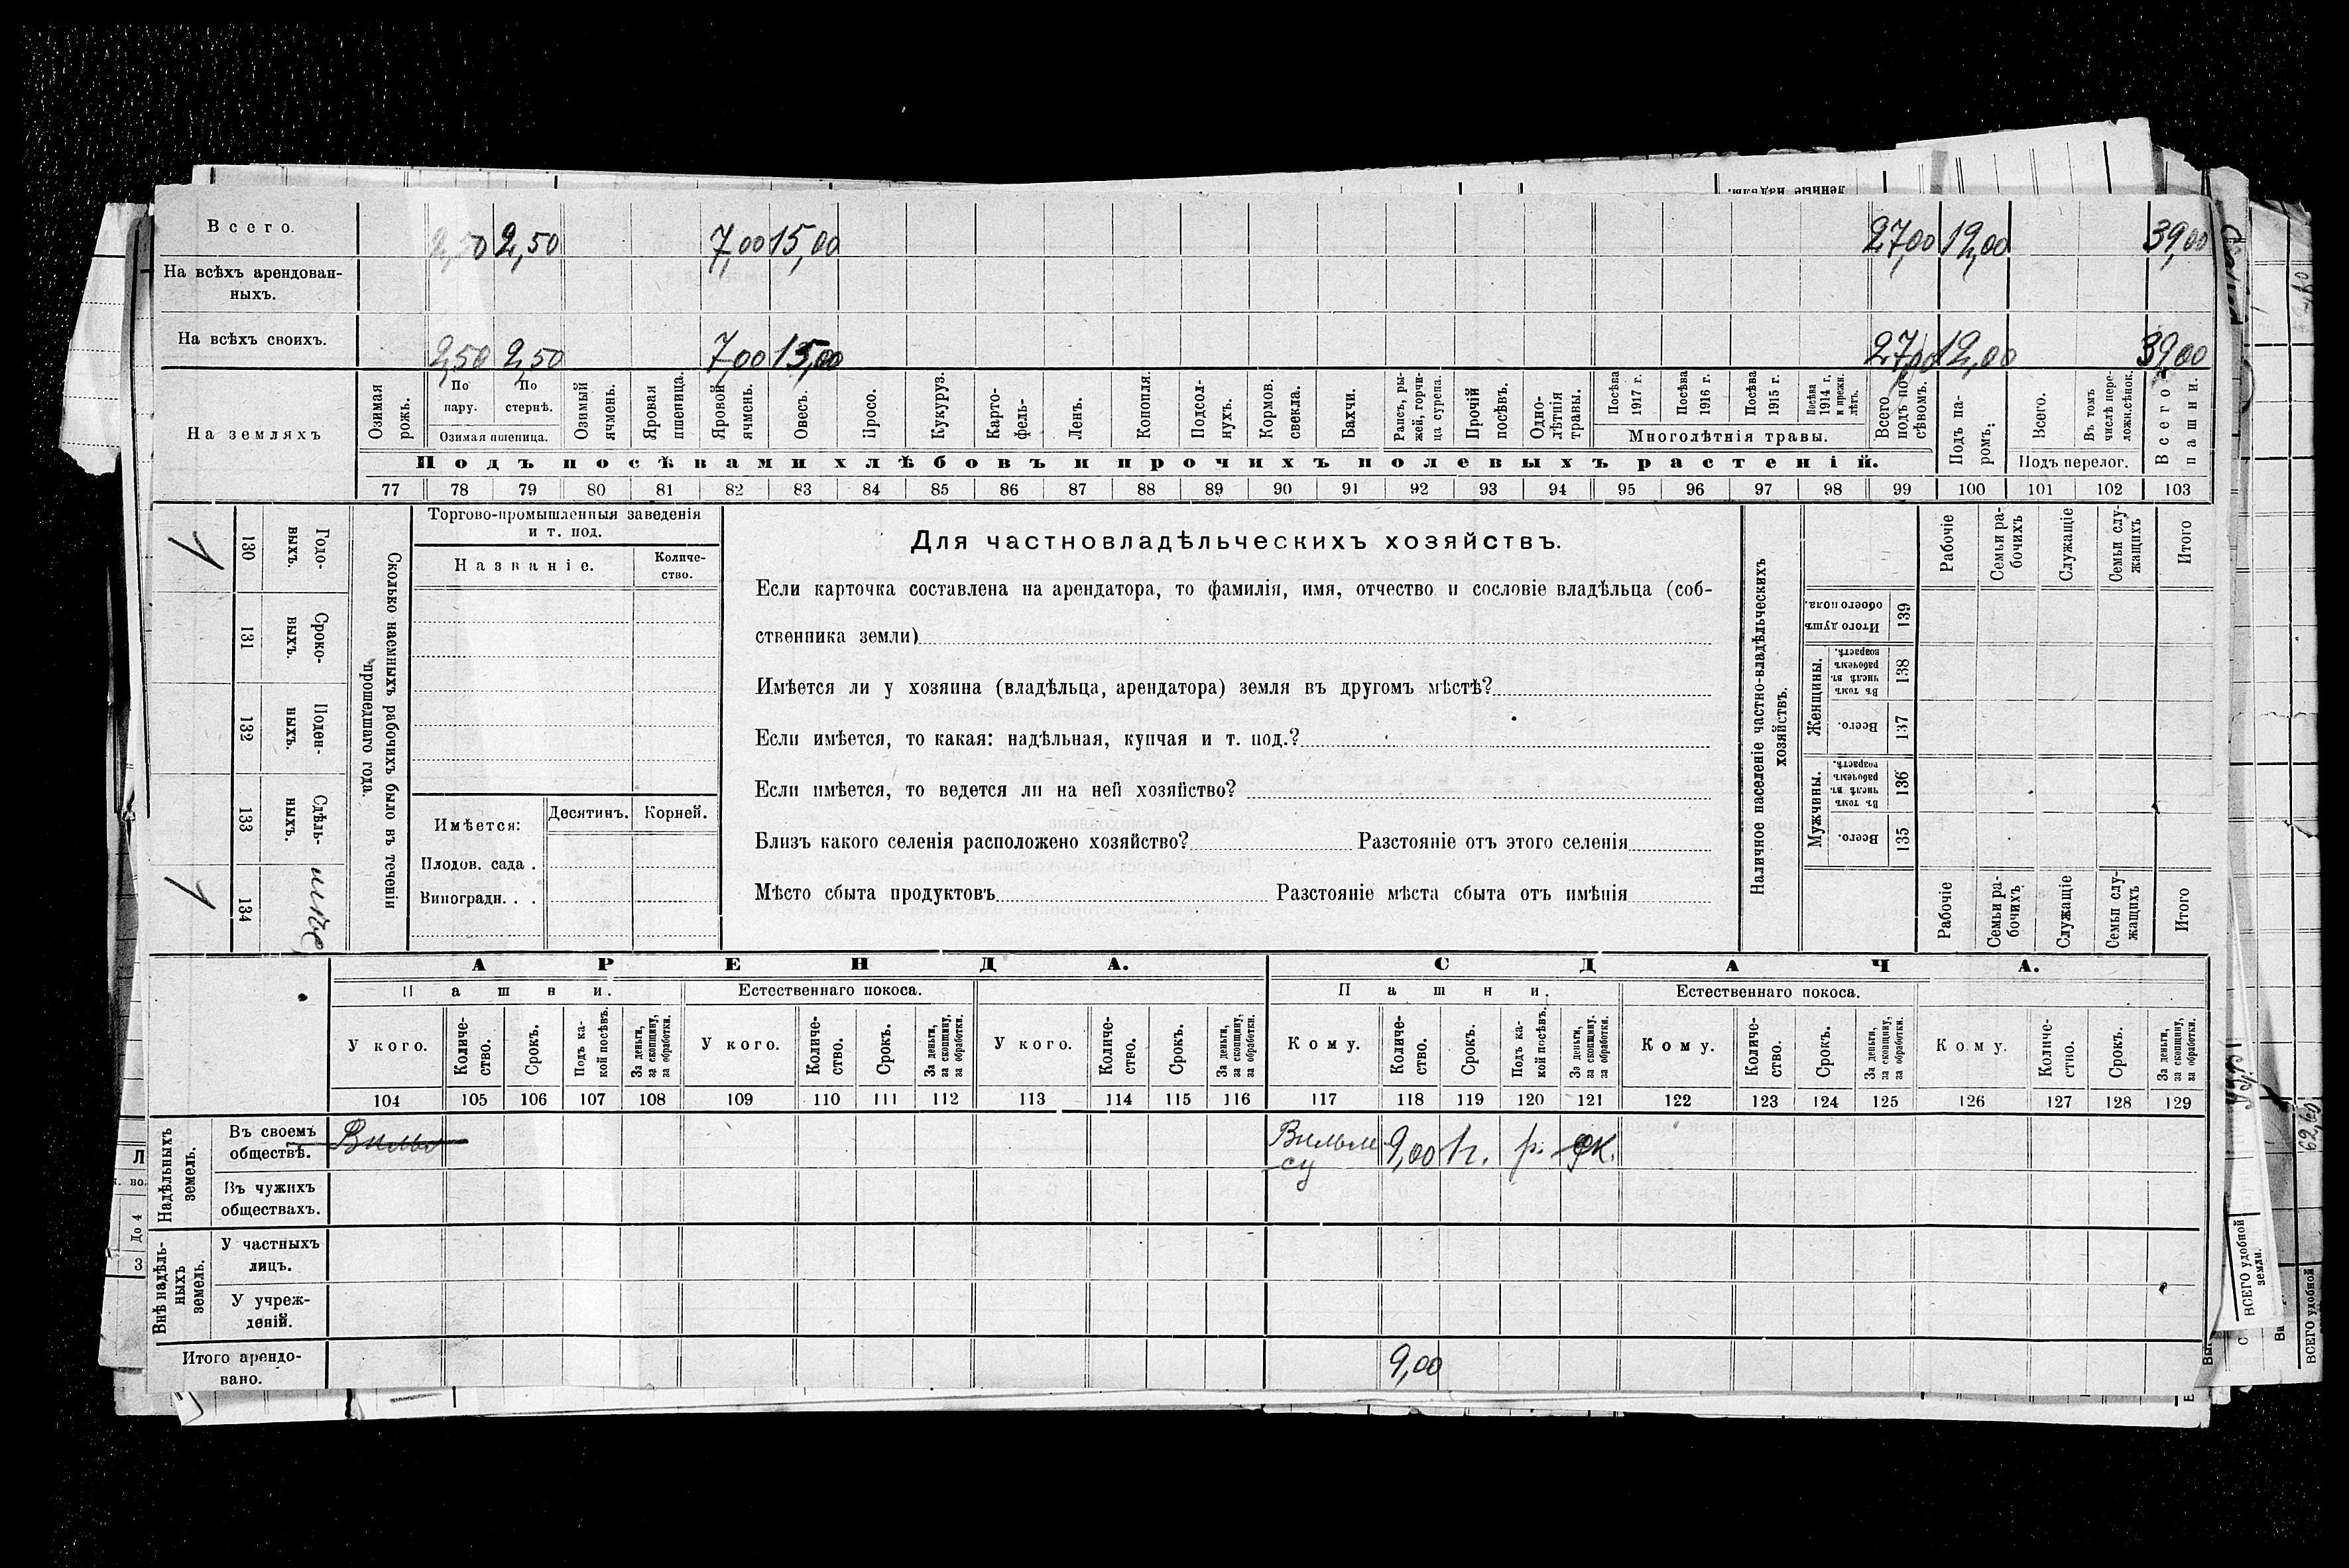 Всего. 2,50 2,50 7,00 15,00 27,00 12,00 39,00
На всѣхъ арендован-
ныхъ.
На всѣхъ своихъ. 2,50 2,50 7,00 15,00 27,00 12,00 39,00
На земляхъ
Озимая рожь.
По пару.
По стернѣ.
Озимая пшеница.
Озимый ячмень.
Яровая пшеница.
Яровой ячмень.
Овесъ.
Просо.
Кукуруз.
Карто-
фель-
Ленъ.
Конопля.
Подсол-
нухъ.
Кормов.
свекла.
Бахчи.
Рапсъ, ры-
жей, горчи-
ца сурепа.
Прочій
посѣвъ.
Одно-
лѣтнія
травы.
Посѣва
1917 г.
Посѣва
1916 г.
Посѣва
1915 г.
Посѣва
1914 г.
и прежн.
лѣтъ.
Многолѣтнія травы.
Всего
подъ по-
сѣвомъ.
Подъ па-
ромъ:
Всего.
Въ томъ
числѣ пере-
ложн.сѣнок.
Подъ перелог.
Всего
пашни.
Подъ посѣвами хлѣбовъ и прочихъ полевыхъ растеній.
77 78 79 80 81 82 83 84 85 86 87 88 89 90 91 92 93 94 95 96 97 98 99 100 101 102 103
1 130 Годо-
выхъ.
131 Сроко-
выхъ.
132 Поден-
ныхъ.
133 Сдѣль-
ныхъ.
1 134
Сколько наемныхъ рабочихъ было въ теченіи
прошедшаго года.
Торгово-промышленныя заведенія
и т. под.
Названіе.
Количе-
ство.
Имѣется: Десятинъ. Корней.
Плодов. сада .
Виноградн. . .
Для частновладѣльческихъ хозяйствъ.
Если карточка составлена на арендатора, то фамилія, имя, отчество и сословіе владѣльца (соб-
ственника земли)
Имѣется ли у хозяина (владѣльца, арендатора) земля въ другомъ мѣстѣ?
Если имѣется, то какая: надѣльная, купчая и т. под.?
Если имѣется, то ведется ли на ней хозяйство?
Близъ какого селенія расположено хозяйство? Разстояніе отъ этого селенія
Мѣсто сбыта продуктовъ Разстояніе мѣста сбыта отъ имѣнія
Наличное населеніе частно-владѣльческихъ
хозяйствъ.
Рабочіе
Семьи ра-
бочихъ
Служащіе
Семьи слу-
жащихъ
Итого
Итого душъ
обоего пола.
139
Женщины.
Въ томъ
числѣ въ
рабочемъ
возрастѣ.
138
Всего.
137
Мужчины.
Въ томъ
числѣ въ
рабочемъ
возрастѣ.
136
Всего.
135
Рабочіе
Семьи ра-
бочихъ
Служащіе
Семьи слу-
жащихъ
Итого
АРЕНДА. СДАЧА.
Пашни. Естественнаго покоса. Пашни. Естественнаго покоса.
У кого.
Количе-
ство.
Срокъ.
Подъ ка-
кой посѣвъ.
За деньги,
за скопщину,
за обработки.
У кого.
Количе-
ство.
Срокъ.
За деньги,
за скопщину,
за обработки.
У кого.
Количе-
ство.
Срокъ.
За деньги,
за скопщину,
за обработки.
Кому.
Количе-
ство.
Срокъ.
Подъ ка-
кой посѣвъ.
За деньги,
за скопщину.
за обработки.
Кому.
Количе-
ство.
Срокъ.
За деньги,
за скопщину,
за обработки.
Кому.
Количе-
ство.
Срокъ.
За деньги,
за скопщину,
за обработки.
104 105 106 107 108 109 110 111 112 113 114 115 116 117 118 119 120 121 122 123 124 125 126 127 128 129
Надѣльныхъ
земель.
Въ своемъ
обществѣ.
Вильм
су 9,00
Въ чужихъ
обществахъ.
Внѣ надѣль-
ныхъ
земель.
У частныхъ
лицъ.
У учреж-
деній.
Итого арендо-
вано. 9,00
До 4
3
ВСЕГО удобной
земли.
ВСЕГО удобной
62,60